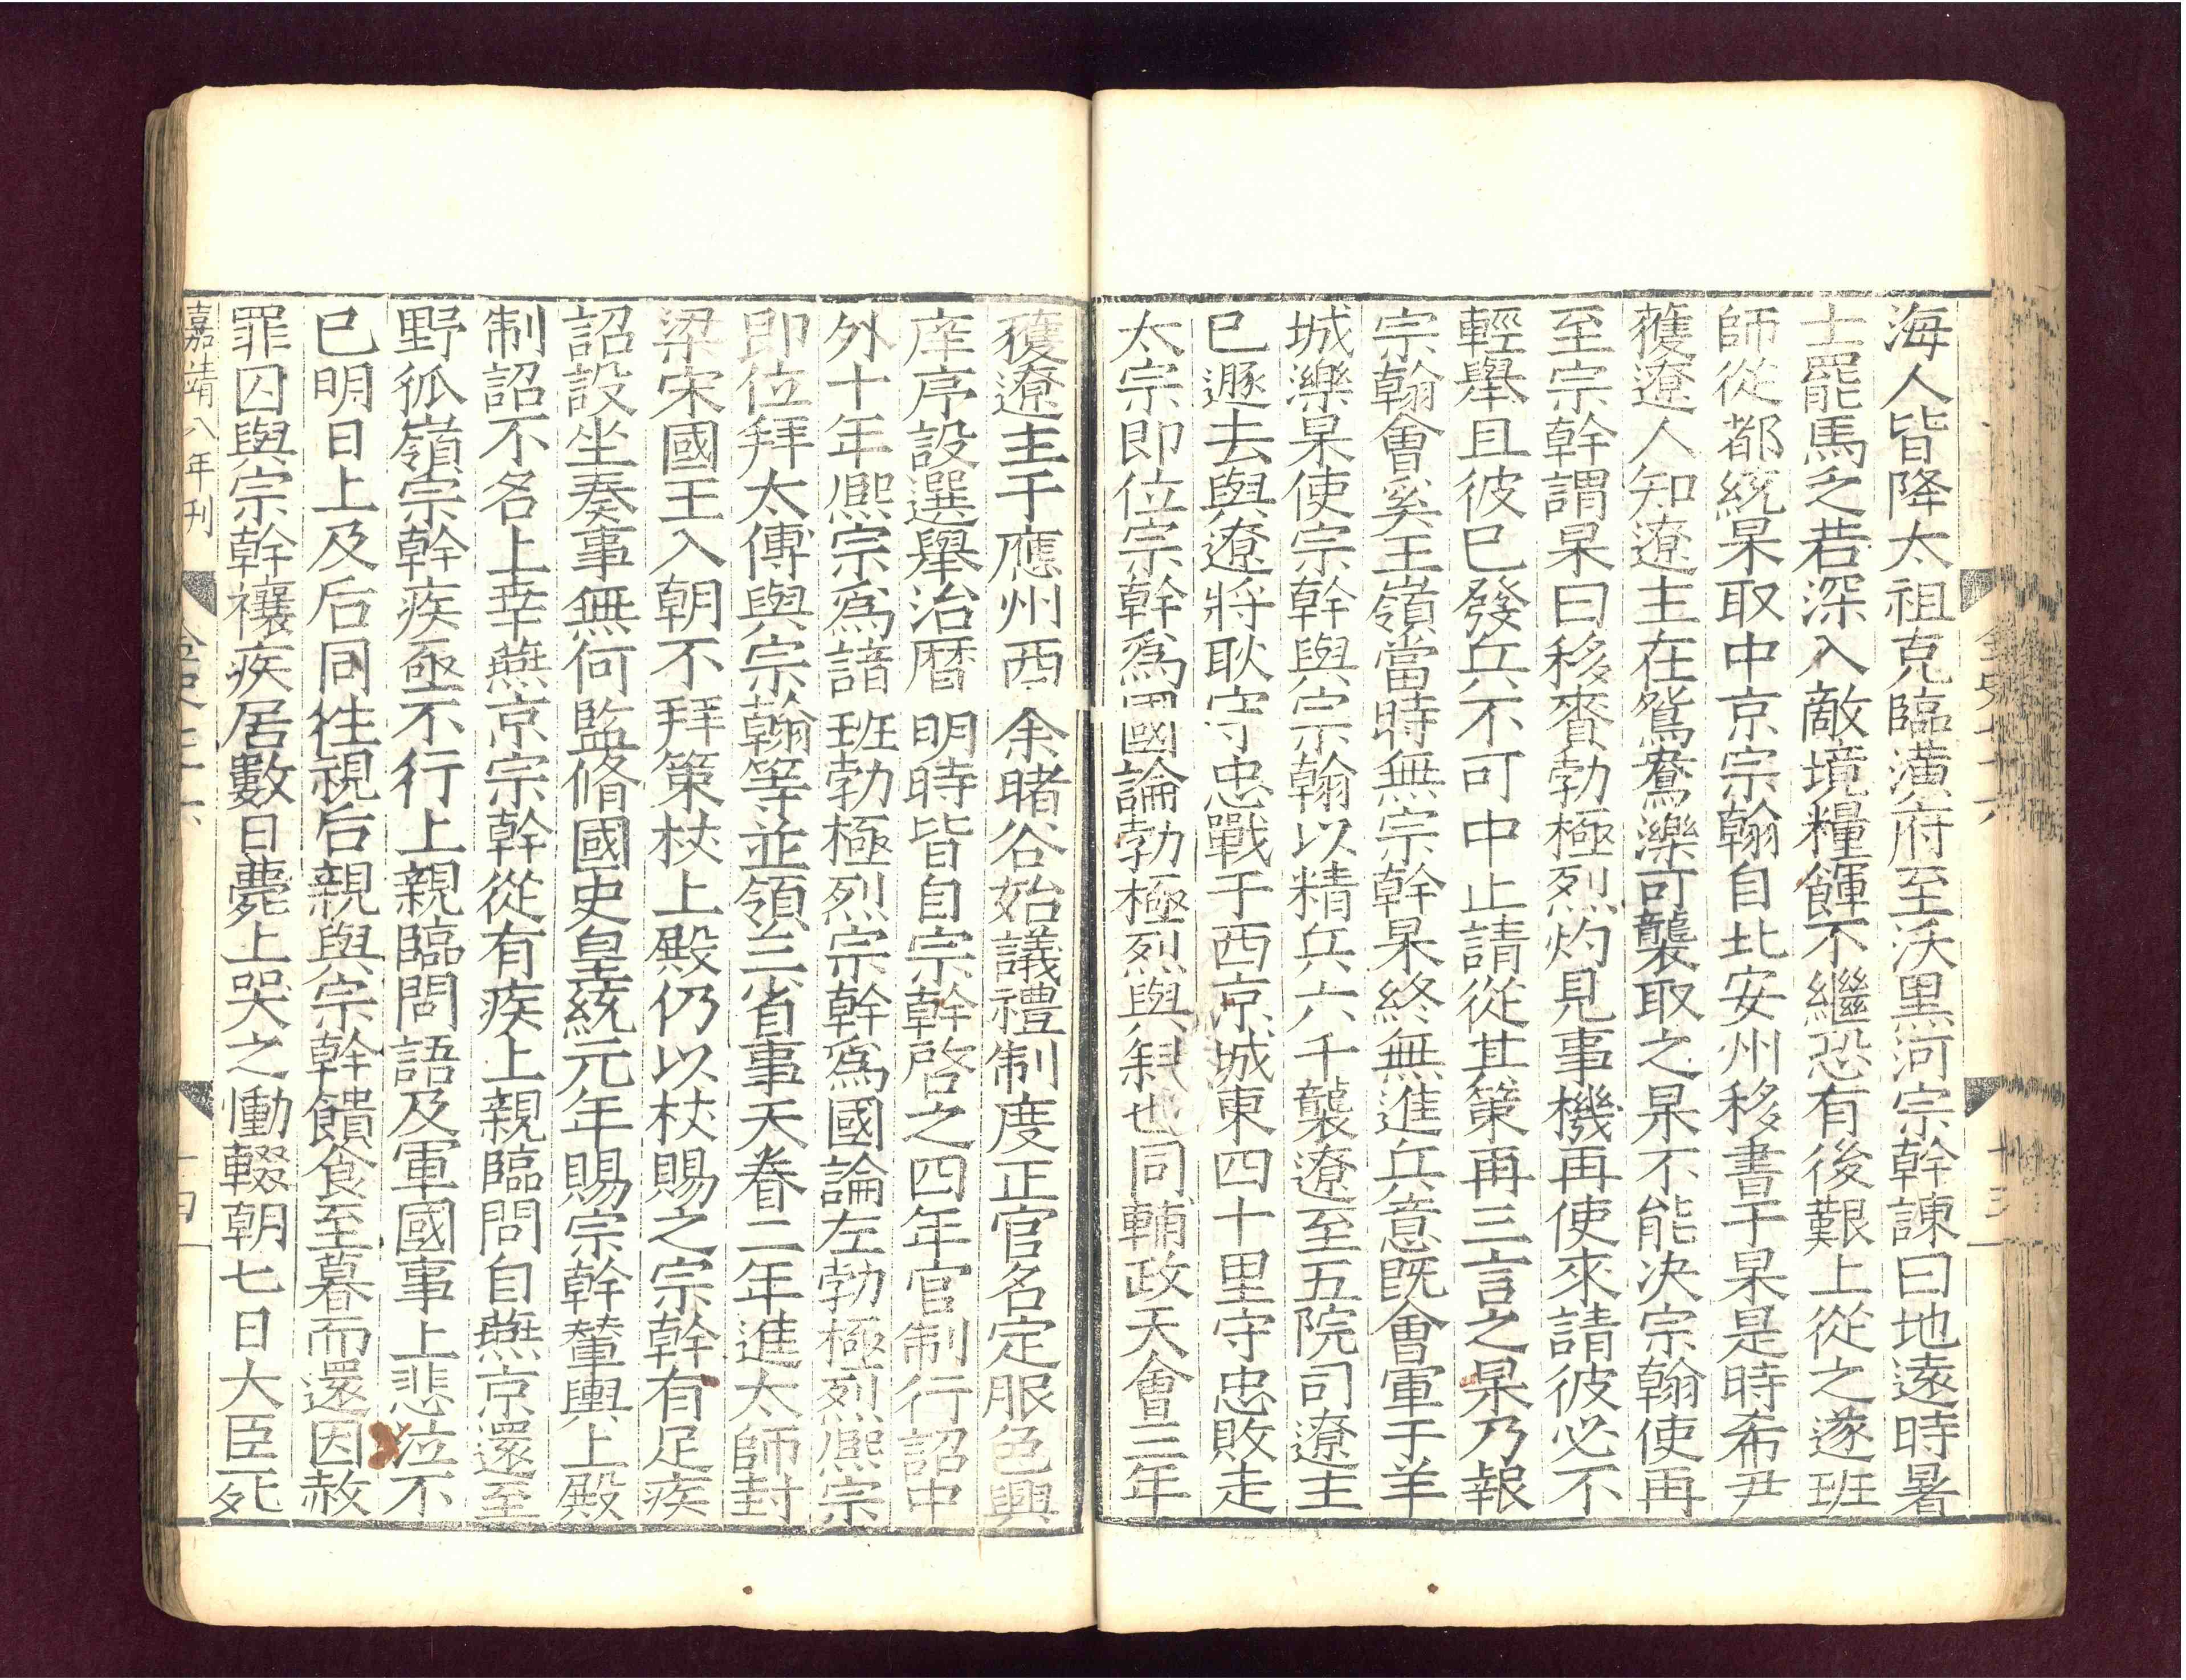 海人皆降太祖克臨潢府至沃黑河宗幹諫曰地遠時暑
士罷馬乏若深入敵境糧餫不繼恐有後艱上從之遂班
師從都統杲取中京宗翰自北安州移書于杲是時希尹
獲遼人知遼主在鴛鴦濼可襲取之杲不能決宗翰使再
至宗幹謂杲曰移賚勃極烈灼見事機再使來請彼必不
輕舉且彼已發兵不可中止請從其策再三言之杲乃報
宗翰會奚王嶺當時無宗幹杲終無進兵意既會軍于羊
城濼杲使宗幹與宗翰以精兵六千襲遼至五院司遼主
已遯去與遼將耿守忠戰于西京城東四十里守忠敗走
太宗即位宗幹爲國論勃極烈與斜也同輔政天會三年
獲遼主于應州西余睹谷始議禮制度正官名定服色興
庠序設選舉治曆明時皆自宗幹啓之四年官制行詔中
外十年熈宗爲諳班勃極烈宗幹爲國論左勃極烈熈宗
即位拜太傅與宗翰等並領三省事天眷二年進太師封
梁宋國王入朝不拜策杖上殿仍以杖賜之宗幹有足疾
詔設坐奏事無何監脩國史皇統元年賜宗幹輦輿上殿
制詔不名上幸燕京宗幹從有疾上親臨問自燕京還至
野狐嶺宗幹疾亟不行上親臨問語及軍國事上悲泣不
已明日上及后同往視后親與宗幹饋食至暮而還因赦
罪囚與宗幹禳疾居數日薨上哭之慟輟朝七日大臣死
嘉靖八年刊